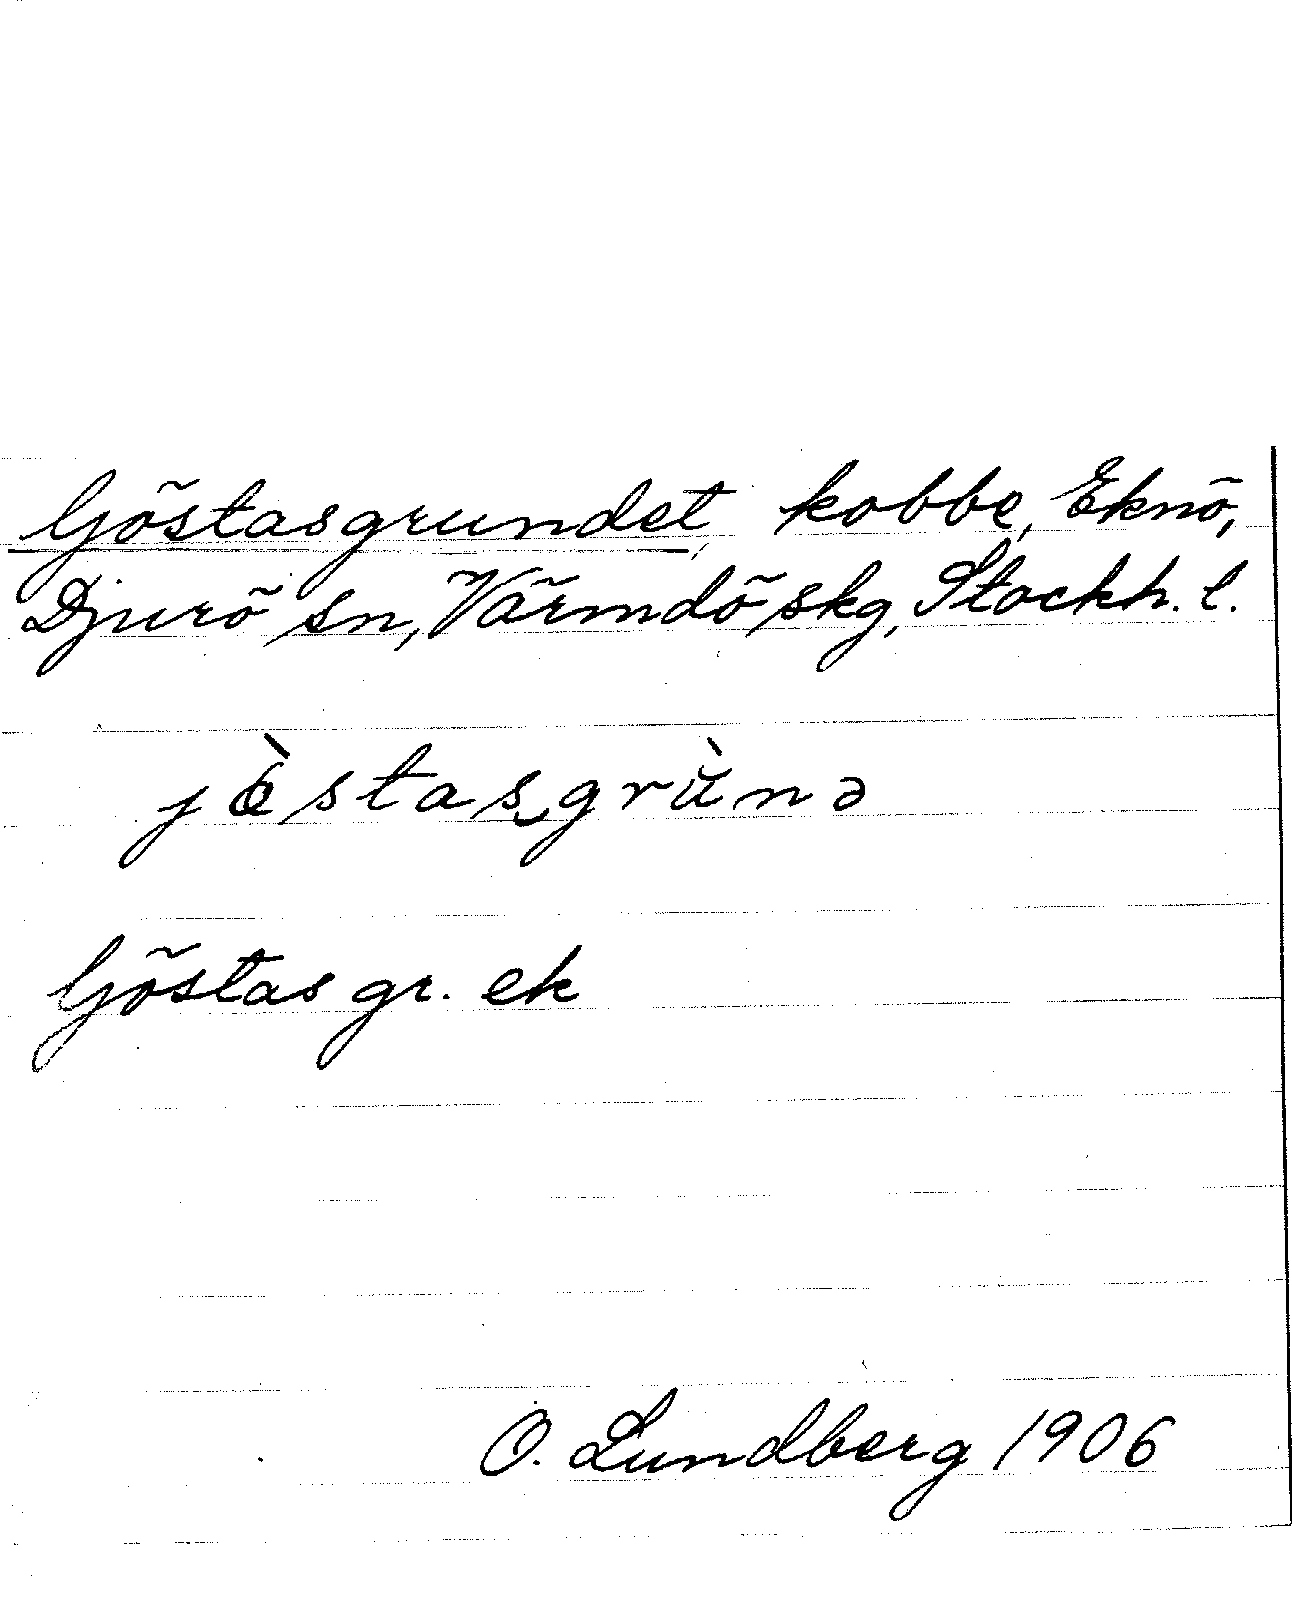 Göstasgrundet, kobbe, Eknö,
Djurö sn, Värmdö skg, Stockh. l.
jö̀stasgrùnə
Göstas gr. ek
O. Lundberg 1906